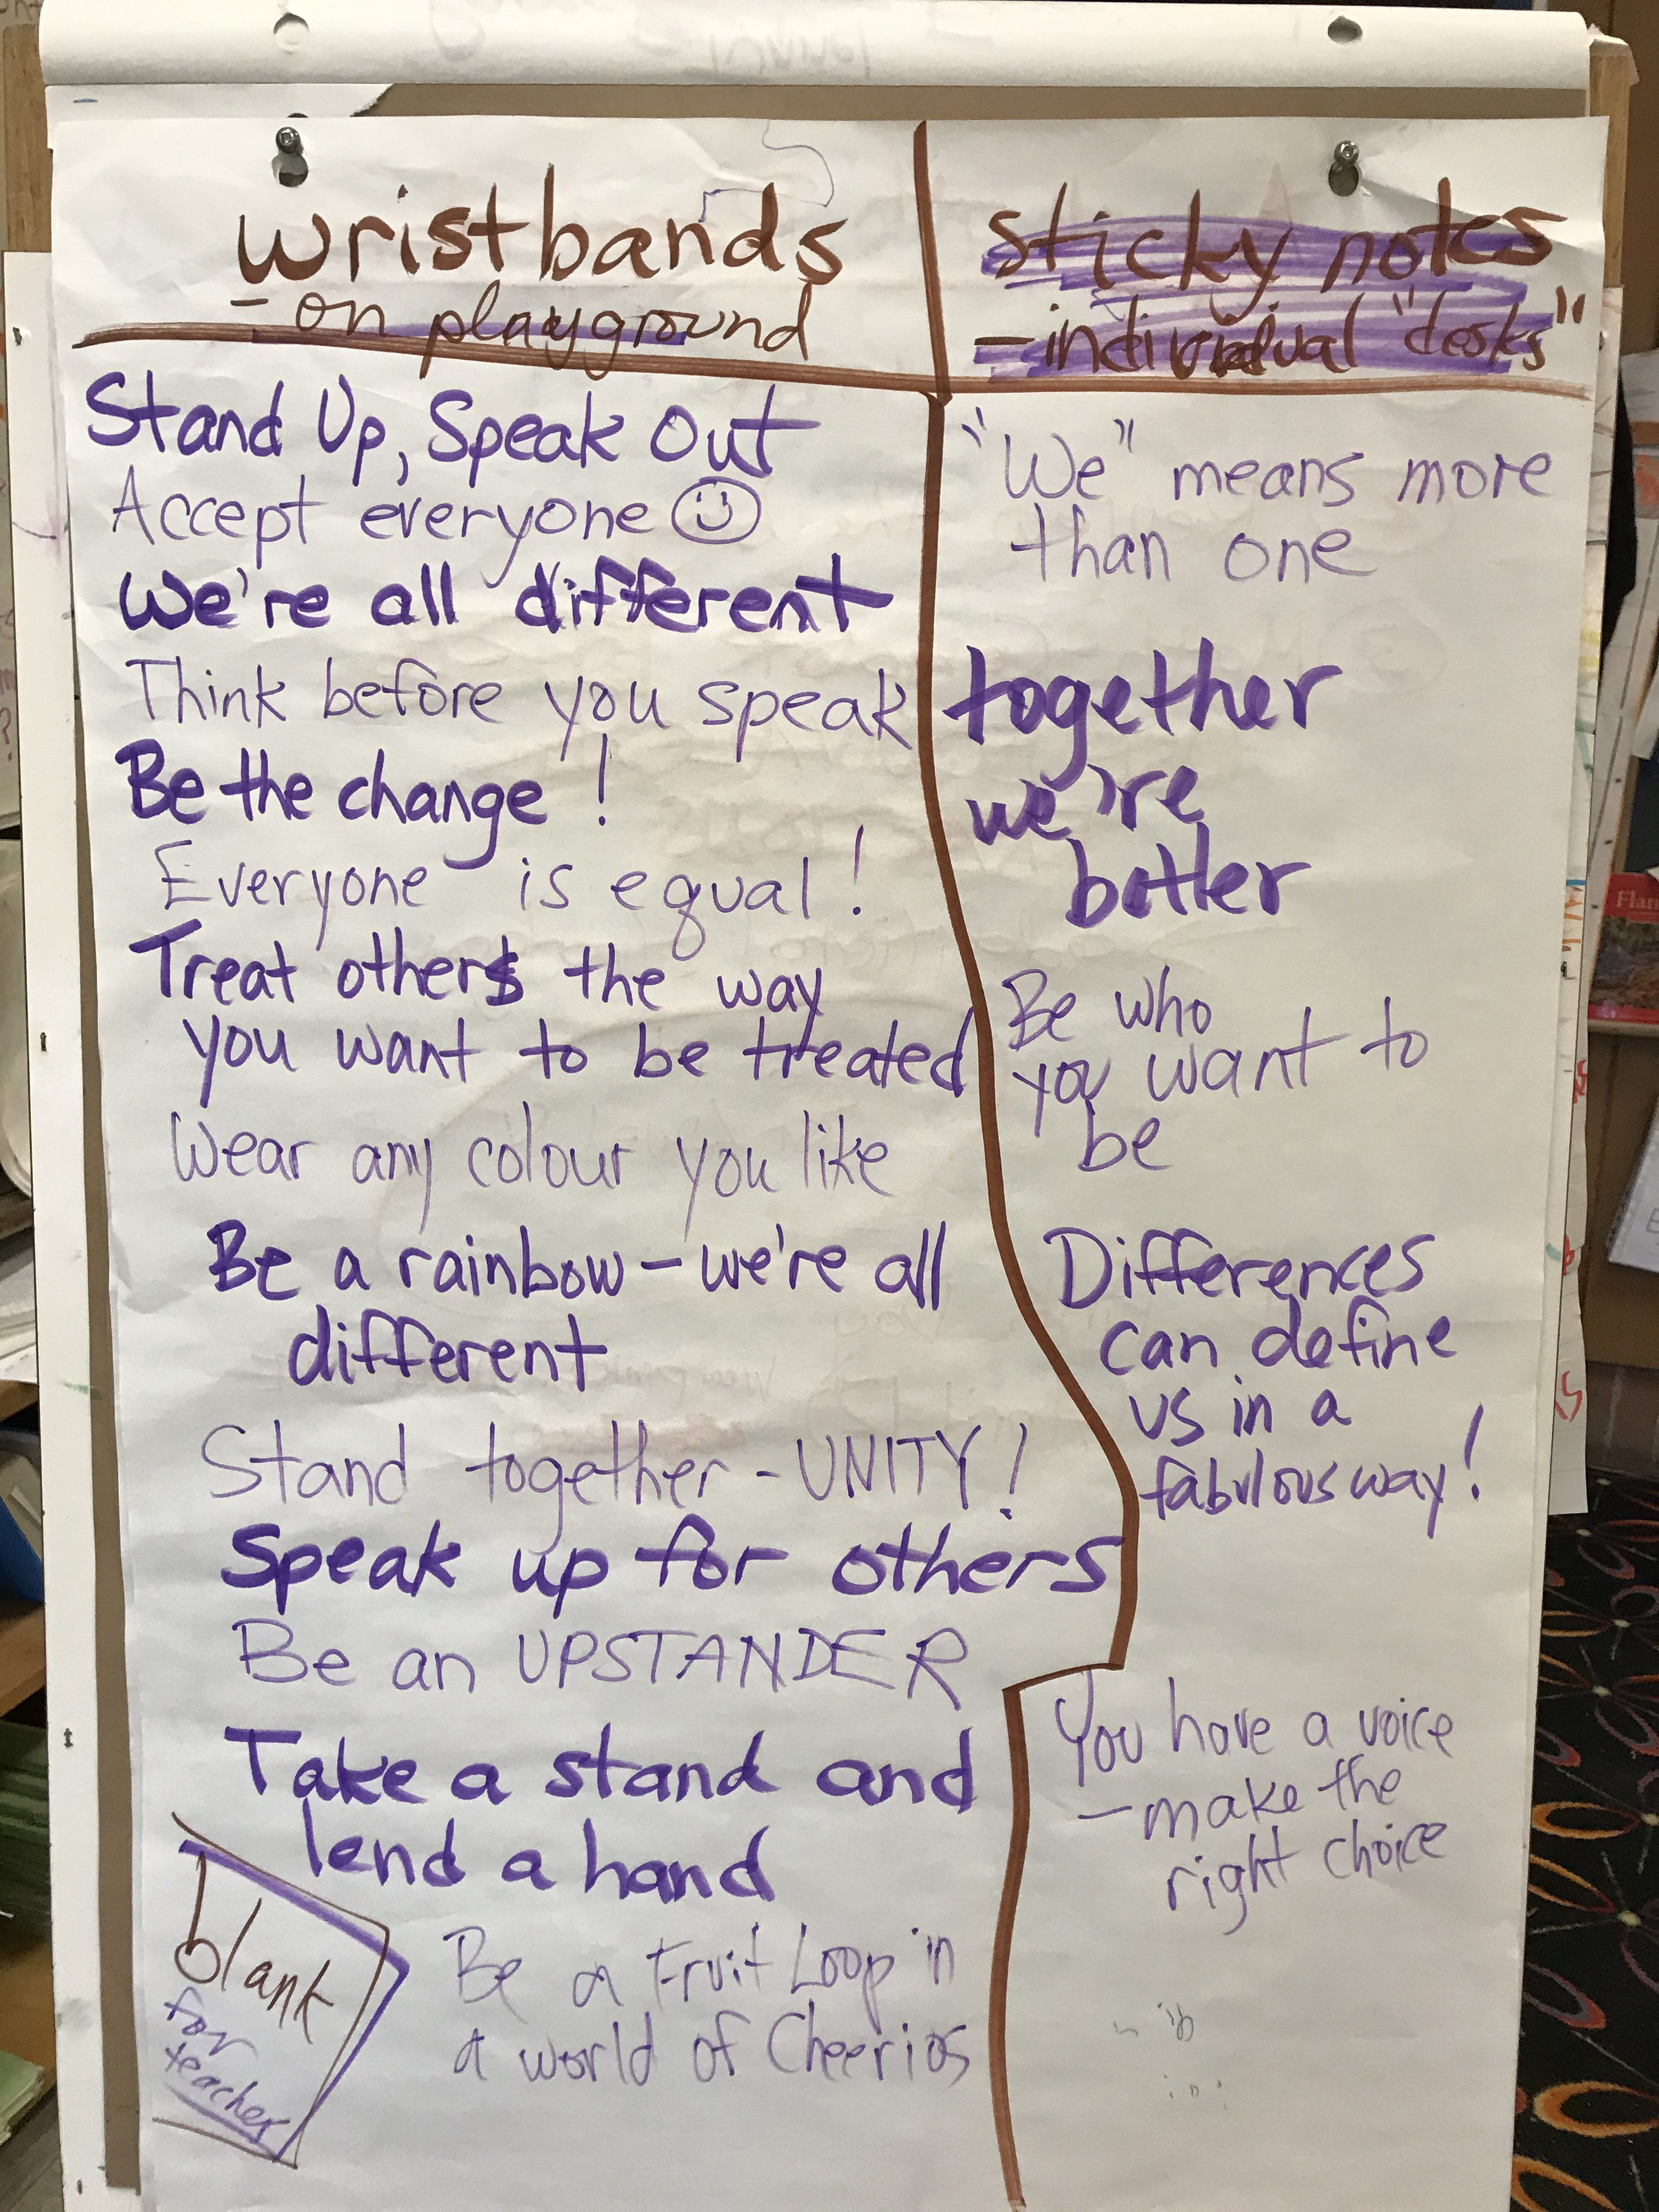 wristbands
- on playground
Stand Up, Speak Out
Accept everyone
We're all different
Think before you speak
Be the change!
Everyone is equal!
Treat others the way
you want to be treated
Wear any colour you like
Be a rainbow - we're all
different
Stand together - UNITY!
Speak up for others
Be an UPSTANDER
Take a stand and
lend a hand
blank
for
teacher
Be a Fruit Loop in
a world of Cheerios
sticky notes
- individual "desks"
"We" means more
than one
together
we're
better
Be who
you want to
be
Differences
can define
us in a
fabulous way!
You have a voice
- make the
right choice
Flan